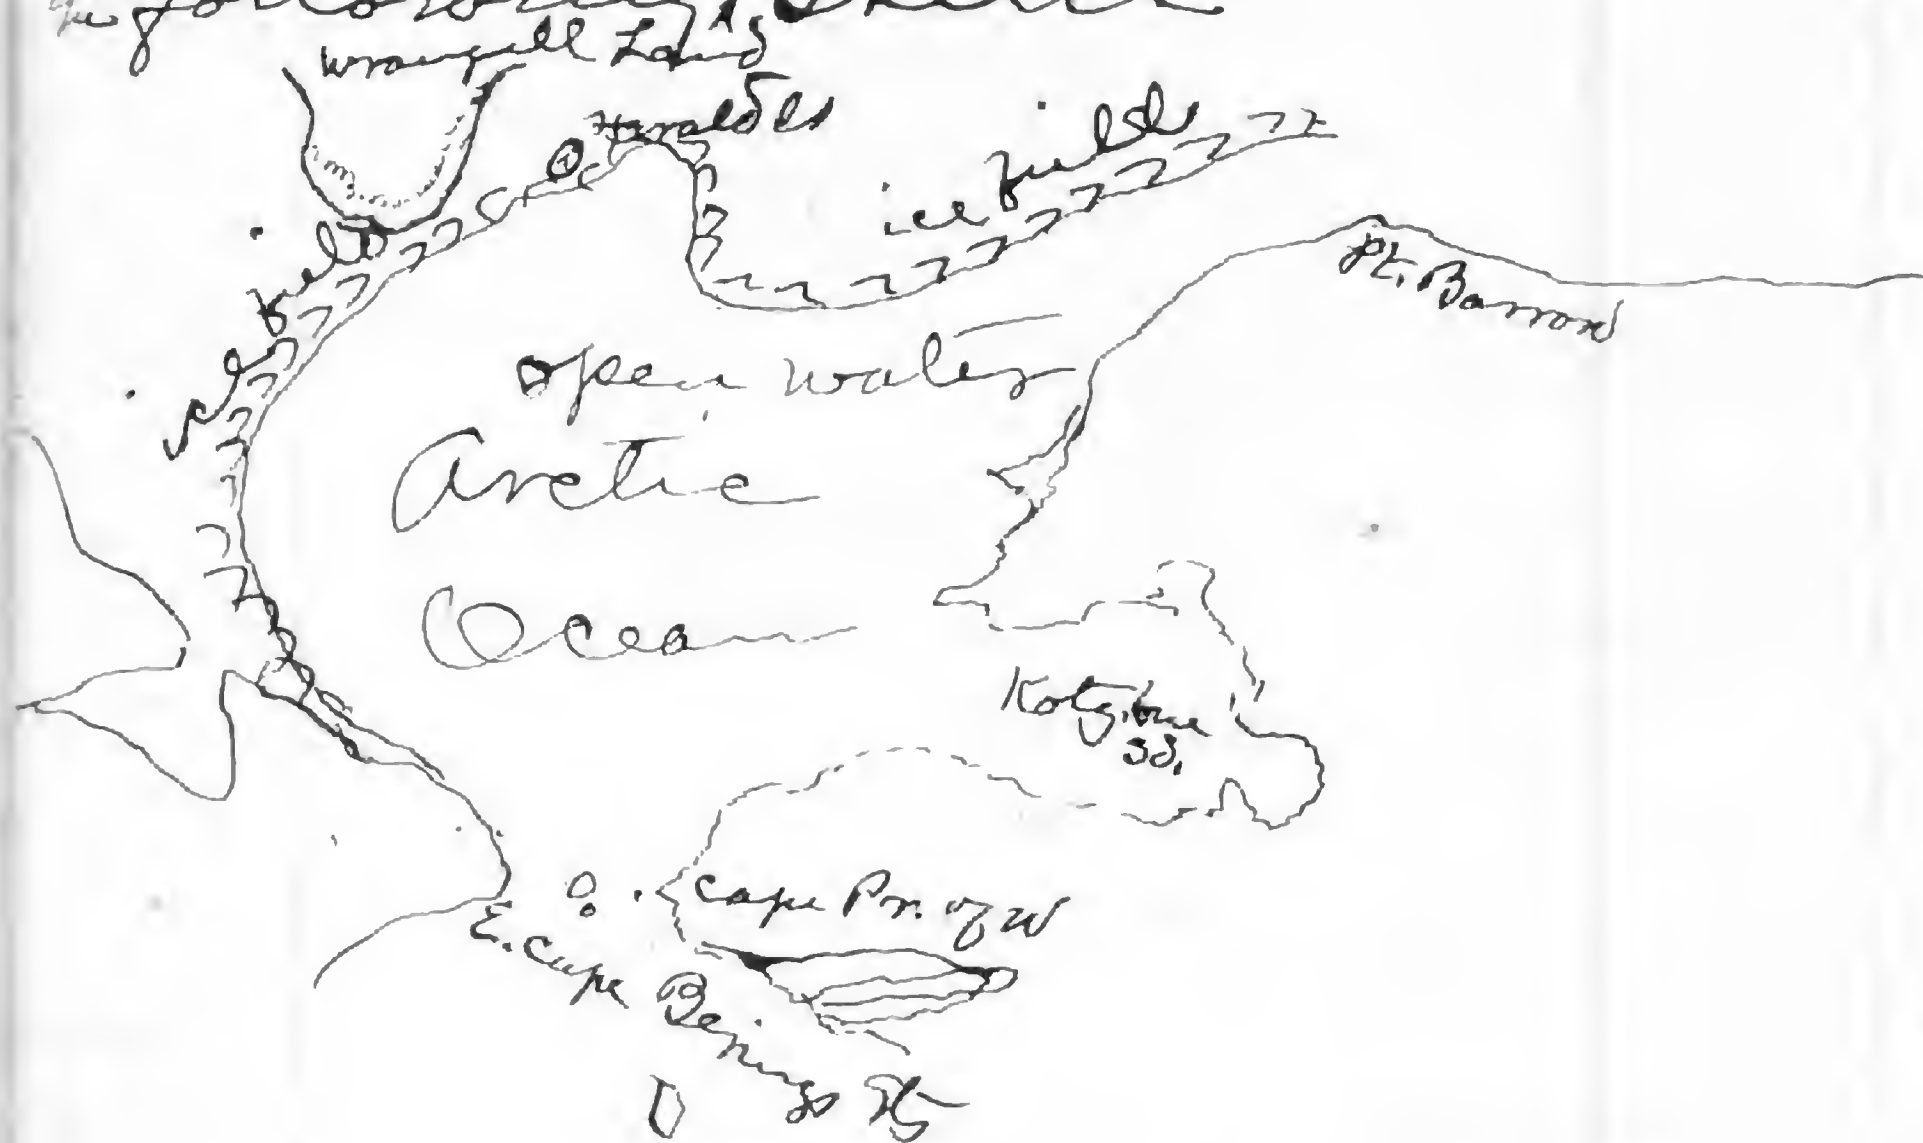 the following sketch
Wrangell Land
Harald Is
ice fields
ice fields
Pt. Barrow
open water
Arctic
Ocean
Kotzebue
Sd.
Cape Pr. of W
E. Cape
Bering St